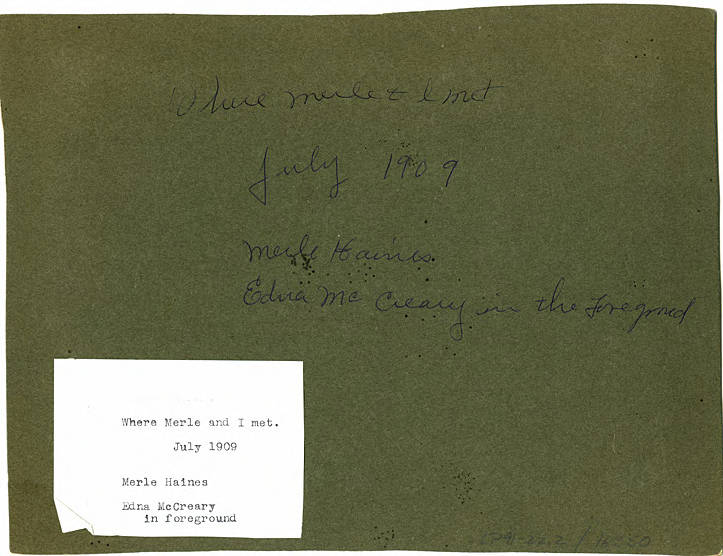 Where Merle & I met
July 1909
Merle Haines
Edna McCreary in the Foregroud
Where Merle and I met.
July 1909
Merle Haines
Edna McCreary
in foreground